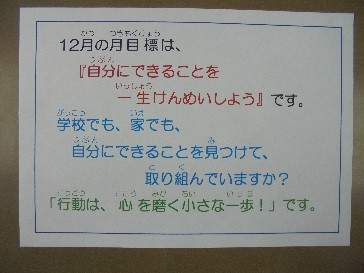 12月の月目標は、
『自分にできることを
一生けんめいしよう』です。
学校でも、家でも、
自分にできることを見つけて、
取り組んでいますか？
「行動は、心を磨く小さな一歩！」です。